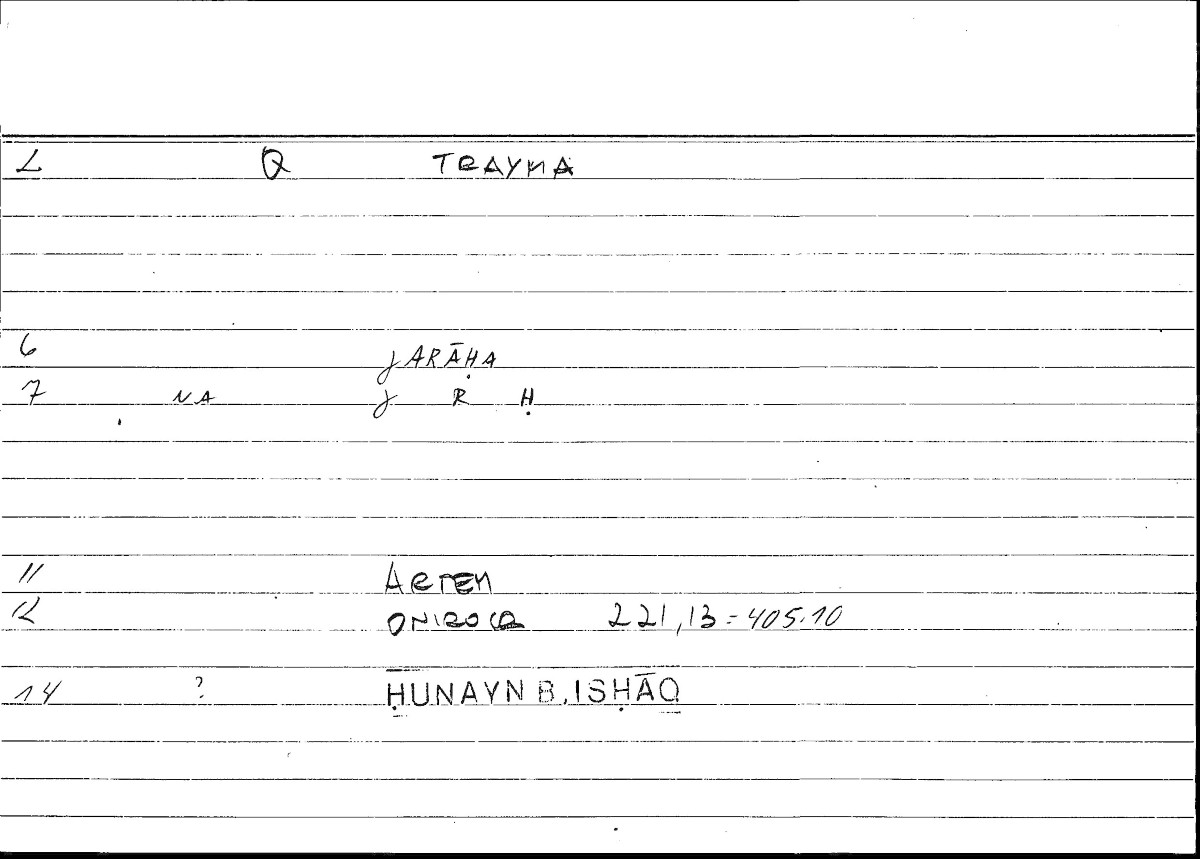 L Q TRAYMA
6 JARĀḤA
7 NA J R Ḥ
11 ARTEM
12 ONIROCR 221,13=405.10
14 ? ḤUNAYN B. ISḤĀQ